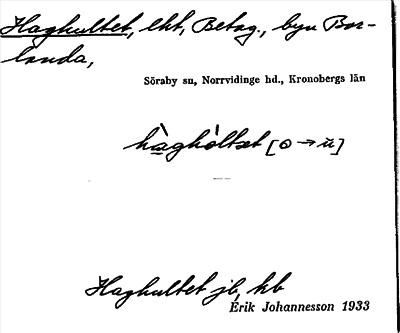 Haghultet, lht, Betag., byn Bor-
landa,
Söraby sn, Norrvidinge hd., Kronobergs län
hàghòltet [o → ŭ]
Haghultet jb, hb
Erik Johannesson 1933